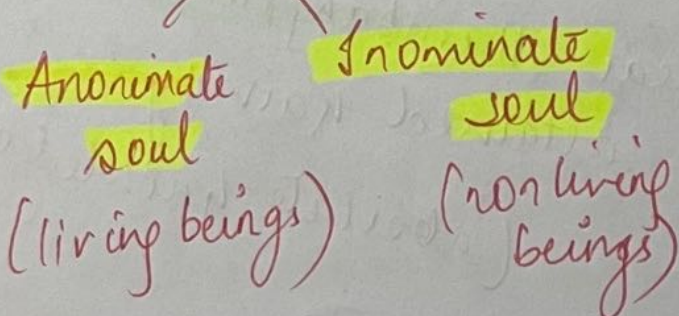 Anonimate
soul
(living beings)
Inominate
soul
(non living
beings)